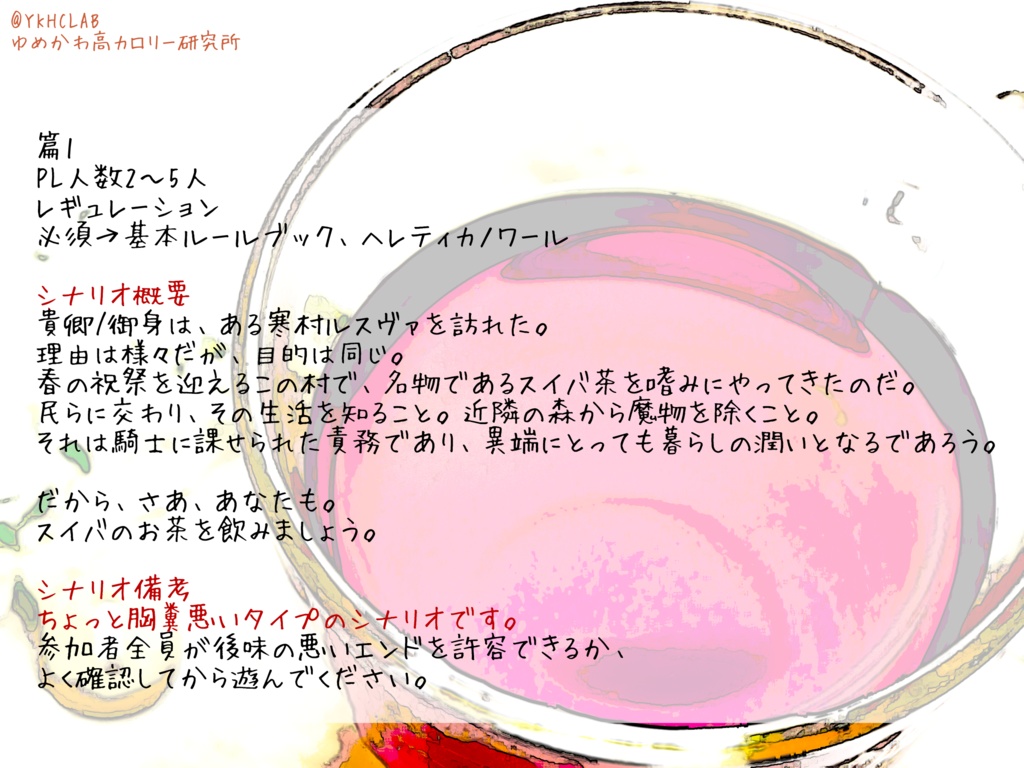 @YKHCLAB
ゆめかわ高カロリー研究所
篇1
PL人数2～5人
レギュレーション
必須→基本ルールブック、ヘレティカノワール
シナリオ概要
貴卿/御身は、ある寒村ルスヴァを訪れた。
理由は様々だが、目的は同じ。
春の祝祭を迎えるこの村で、名物であるスイバ茶を嗜みにやってきたのだ。
民らに交わり、その生活を知ること。近隣の森から魔物を除くこと。
それは騎士に課せられた責務であり、異端にとっても暮らしの潤いとなるであろう。
だから、さあ、あなたも。
スイバのお茶を飲みましょう。
シナリオ備考
ちょっと胸糞悪いタイプのシナリオです。
参加者全員が後味の悪いエンドを許容できるか、
よく確認してから遊んでください。